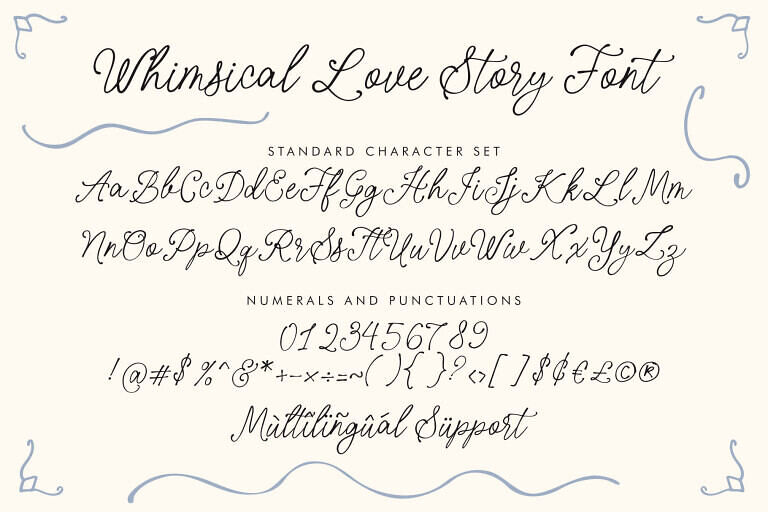 Whimsical Love Story Font
STANDARD CHARACTER SET
AaBbCcDdEeFfGgHhIiJjKkLlMm
NnOoPpQqRrSsTtUuVvWwXxYyZz
NUMERALS AND PUNCTUATIONS
0123456789
!@#$%^&*+-×÷=~(){}?<>[]$¢€£©®
Mùltĩlïñgûál Süppört